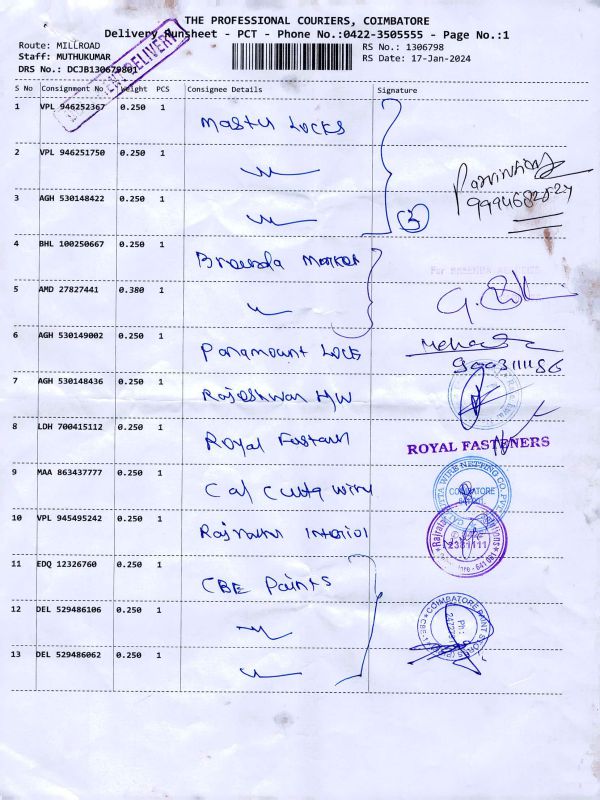 THE PROFESSIONAL COURIERS, COIMBATORE
Delivery Runsheet - PCT - Phone No.:0422-3505555 - Page No.:1
Route: MILLROAD
RS No.: 1306798
Staff: MUTHUKUMAR
RS Date: 17-Jan-2024
DRS No.: DCJB130679801
DELIVERY
S No Consignment No. Weight PCS Consignee Details Signature
1 VPL 946252367 0.250 1 Master Locks
2 VPL 946251750 0.250 1
3 AGH 530148422 0.250 1
(3)
9994682524
4 BHL 100250667 0.250 1
5 AMD 27827441 0.380 1
6 AGH 530149002 0.250 1 Paramount Locks
7 AGH 530148436 0.250 1 Rajeshwari H/W
8 LDH 700415112 0.250 1 Royal
ROYAL FASTENERS
9 MAA 863437777 0.250 1 Calcutta wire
WIRE NETTING CO. PVT.
COIMBATORE
10 VPL 945495242 0.250 1 Interior
2381111
641 001
11 EDQ 12326760 0.250 1 CBE Paints
COIMBATORE PAINT STORES
12 DEL 529486106 0.250 1
13 DEL 529486062 0.250 1